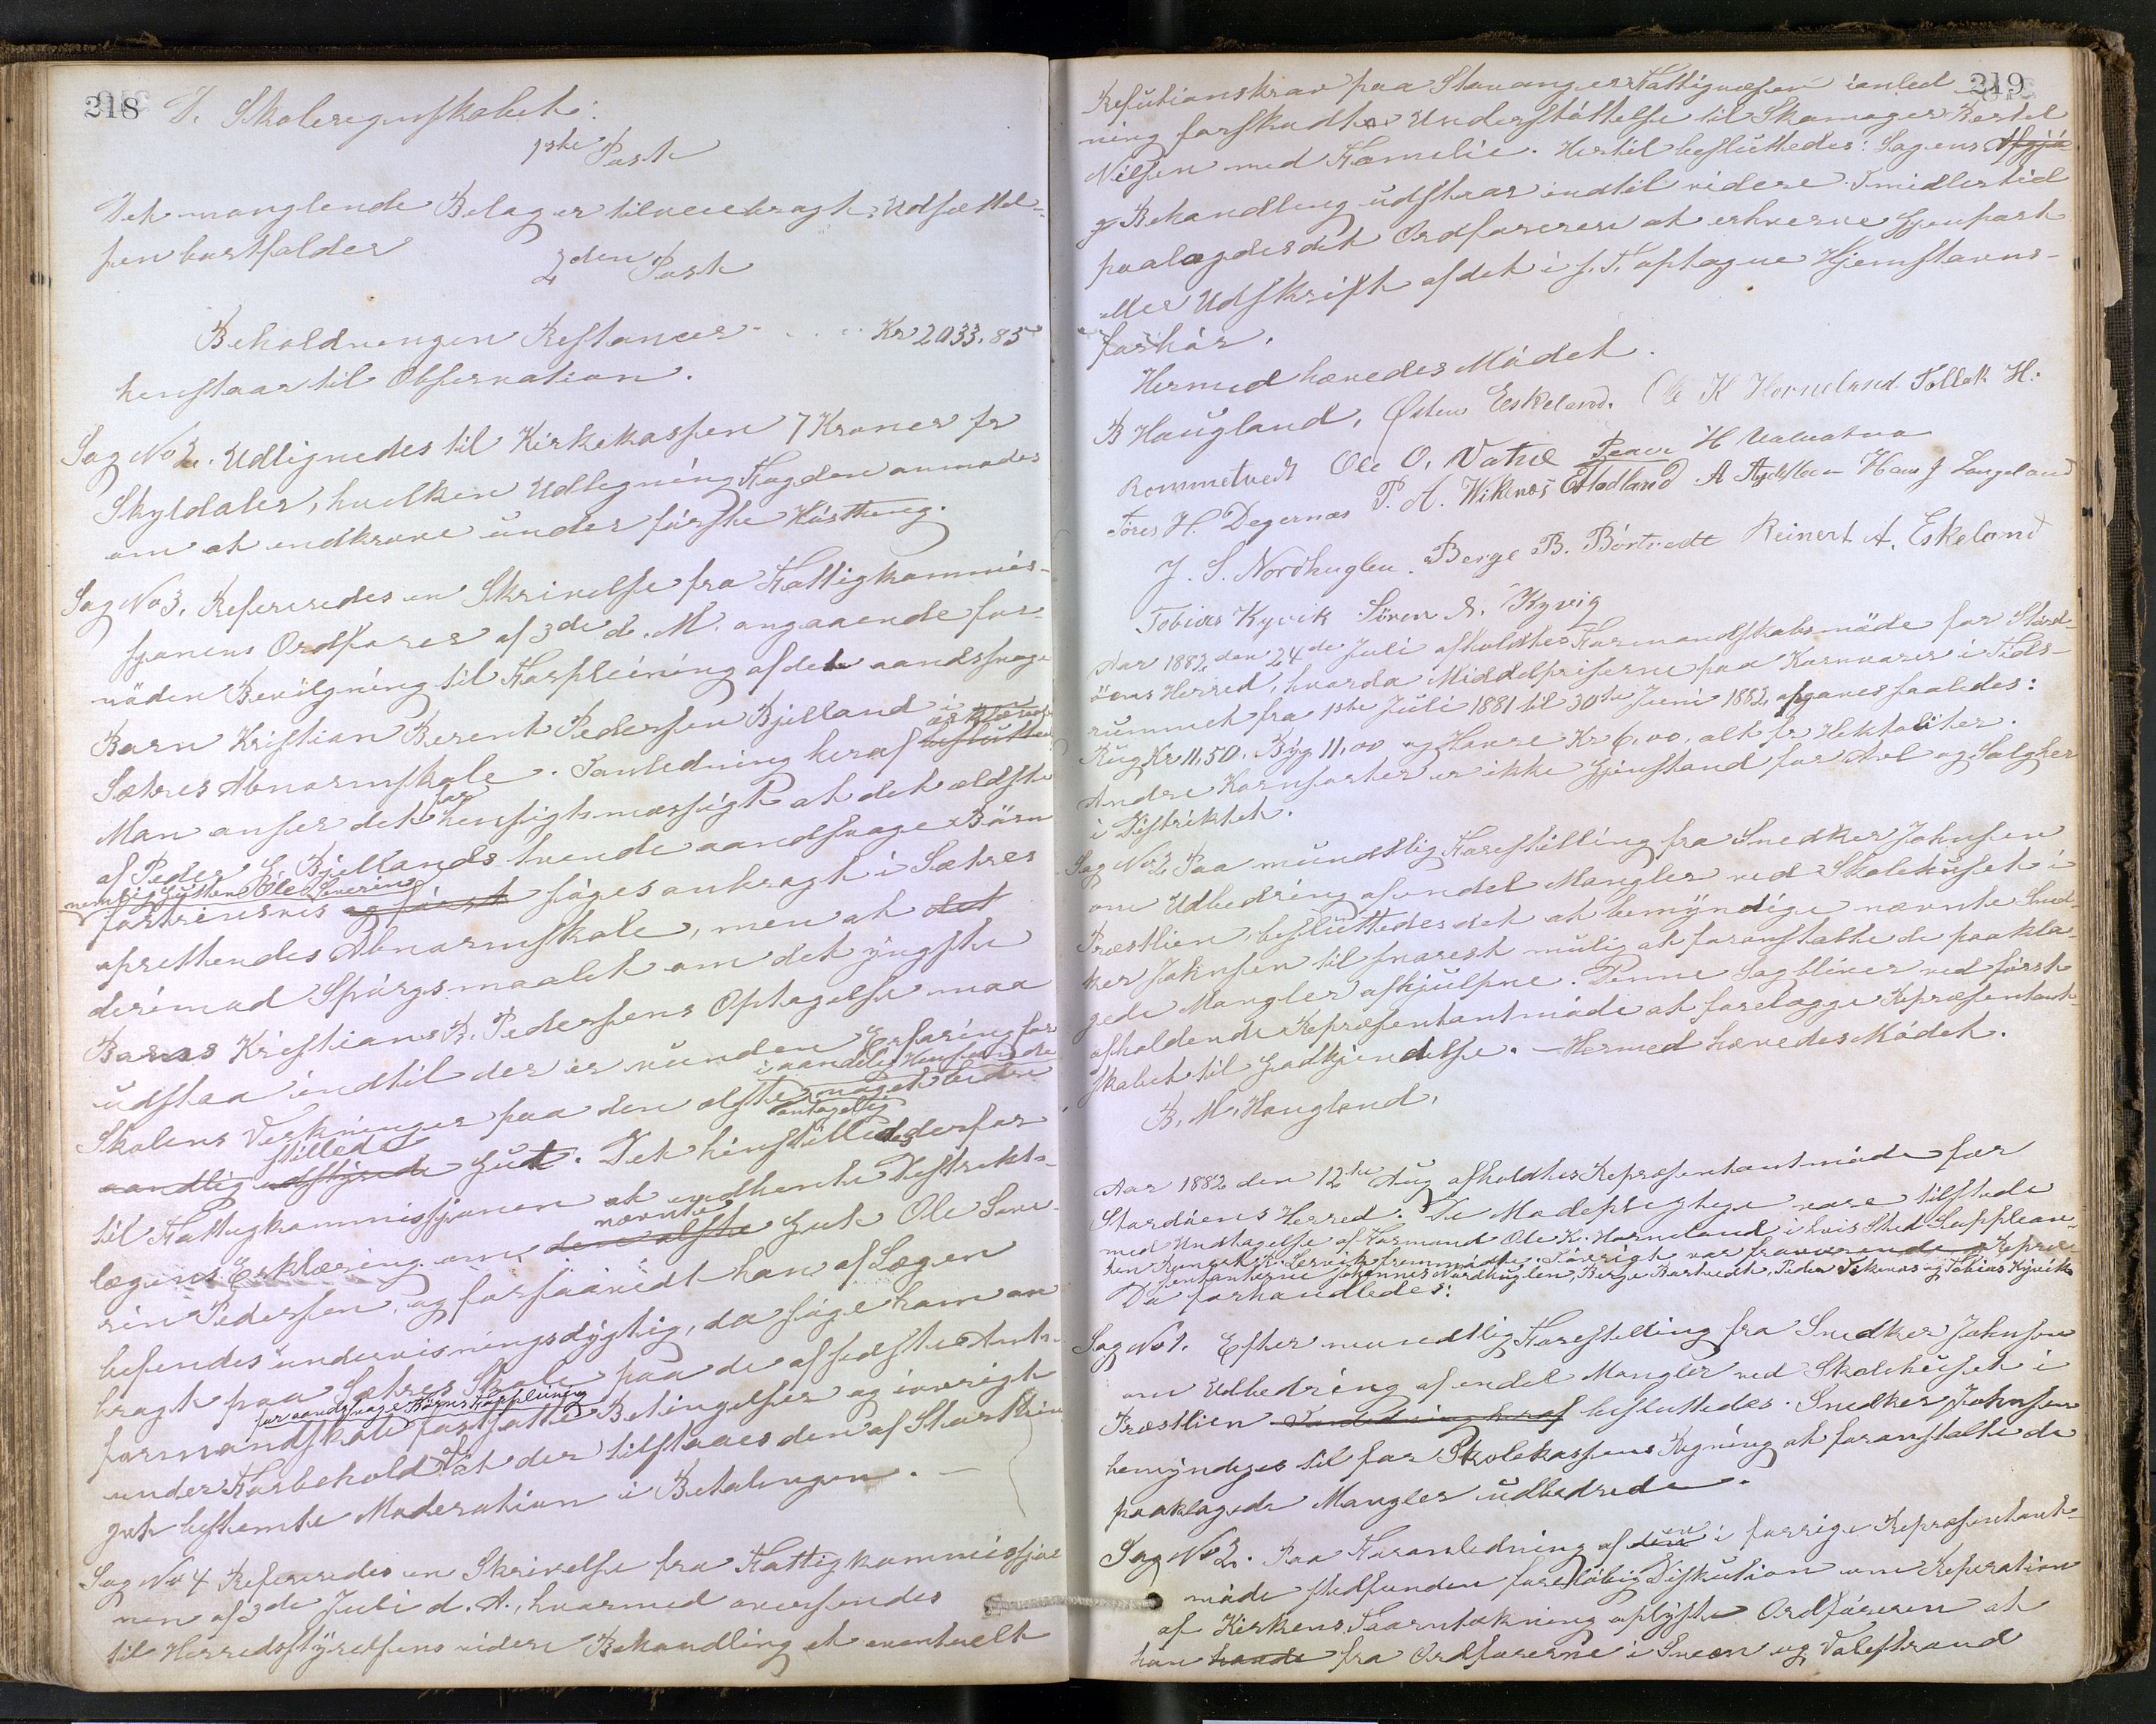 218
I. Skoleregnskabet:
1ste Post
Det manglende Belag er tilveiebragt. Udsættel-
sen bortfalder
2den Post
Beholdningen Restancer . . . Kr 2033.85
henstaar til Observation.
Sag No 2. Udlignedes til Kirkekassen 7 Kroner pr
Skyldaler, hvilken Udligning Fogden anmodes
om at indkræve under første Høstthing.
Sag No 3. Refereredes en Skrivelse fra Fattigkommis-
sjonens Ordfører af 3de d. M. angaaende for-
nöden Bevilgning til Forpleining af det aandssvage
Barn Kristian Berent Pedersen Bjelland i
Sætres Abnormskole. I anledning heraf besluttedes erklæredes
Man anser det for hensigtsmæssigt at det ældste
af Peder G. Bjellands tvende aandssvage Börn
nemlig Gutten Ole Severin
forsviisvis og först söges anbragt i Sætres
oprettendes Abnormskole, men at det
derimod Spörgsmaalet om det yngste
Barns Kristians B. Pedersens Optagelse maa
udstaa indtil der er vunden Erfaring for
Skolens Virkninger paa den ælste i aandelig Henseende meget bedre
aandlig udstyrede stillede antagelig Gut. Det henstilledes derfor
til Fattigkommissjonen at indhente Distrikts-
lægens Erklæring om den ælste nævnte Gut Ole Seve-
rin Pedersen, og forsaavidt han af Lægen
befindes undervisningsdygtig, da söge ham an-
bragt paa Sætres Skole paa de af sidste Amts-
formandskab for aandssvage Börns Forpleining fastsatte Betingelser og iövrigt
under Forbehold af at der tilstaaes den af Storthin-
get bestemte Moderation i Betalingen. —
Sag No 4 Refereredes en Skrivelse fra Fattigkommissjo-
nen af 3de Juli d. A., hvormed oversendes
til Herredsstyrelsens videre Behandling et eventuelt
219
Refutionskrav paa Stavanger Fattigvæsen i anled-
ning forskudt Understöttelse til Skomager Bertel
Nilsen med Familie. Hertil besluttedes: Sagens Afgjö
g Behandling udstaar indtil videre. Imidlertid
paalægdes det Ordföreren at erhverve Gjenpart
eller Udskrift af det i s. T. optagne Hjemstavns-
forhör.
Hermed hævedes Mödet.
B Haugland, Østen Eskeland. Ole K Horneland Tollak H.
Rommetvedt Ole O. Vatne Peder H Valvatna
Tores H. Degernæs P. A. Vikenæs O Hadland A Hans J Langeland
J. S. Nordhuglen. Berge B. Börtvedt Reinert A. Eskeland
Tobias Kyvik Sören A. Kyvig
Aar 1882 den 24de Juli afholdtes Formandskabsmöde for Stord-
öens Herred, hvorda Middelpriserne paa Kornvarer i Tids-
rummet fra 1ste Juli 1881 til 30te Juni 1882 opgaves saaledes:
Rug Kr 11,50. Byg 11,00 og Havre Kr 6,00, alt pr Hektoliter.
Andre Kornsorter er ikke Gjenstand for Avl og Salg her
i Distriktet.
Sag No 2. Paa mundtlig Forestilling fra Snedker Johnsen
om Udbedring af en del Mangler ved Skolehuset i
Præstlien, besluttedes det at bemyndige nævnte Sned-
ker Johnsen til snarest mulig at foranstalte de paakla-
gede Mangler afhjulpne. Denne Sag bliver ved först
afholdende Repræsentantmöde at forelægge Repræsentant-
skabet til Godkjendelse. — Hermed hævedes Mödet.
B. M. Haugland.
Aar 1882 den 12te Aug afholdtes Repræsentantmöde for
Stordöens Herred. De Mödepligtige vare tilstede
med Undtagelse af Formand Ole K. Horneland i hvis Sted Supplean-
ten K. Lervik fremmödte. Iövrigt var fraværende Repræ-
sentanterne Johannes Nordhuglen, Berge Bortvedt, Peder Vikenæs og Tobias Kyvik
Da forhandledes:
Sag No 1. Efter mundtlig Forestilling fra Snedker Johnsen
om Udbedring af endel Mangler ved Skolehuset i
Præstlien I anledning heraf besluttedes. Snedker Johnsen
bemyndiges til for Skolekassens Regning at foranstalte de
paaklagede Mangler udbedrede.
Sag No 2. Paa Foranledning af den en i forrige Repræsentant-
möde stedfunden forelöbig Diskution om Reparation
af Kirkens Taarntækning oplyste Ordföreren at
han havde fra Ordförerne i Sveen og Valestrand